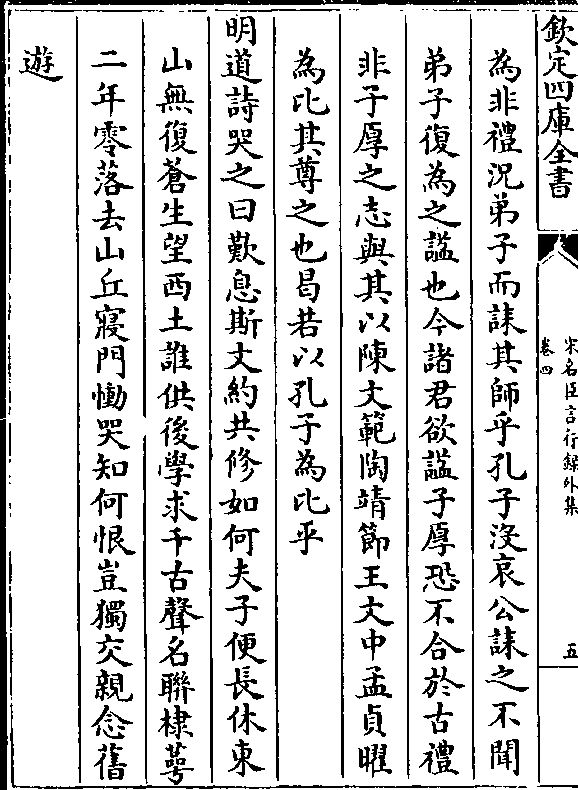 欽定四庫全書
宋名臣言行錄外集
卷四
五
為非禮況弟子而誄其師乎孔子沒哀公誄之不聞
弟子復為之諡也今諸君欲諡子厚恐不合於古禮
非子厚之志與其以陳文範陶靖節王文中孟貞曜
為比其尊之也曷若以孔子為比乎
明道詩哭之曰歎息斯文約共修如何夫子便長休東
山無復蒼生望西土誰供後學求千古聲名聯棣萼
二年零落去山丘寢門慟哭知何恨豈獨交親念舊
遊